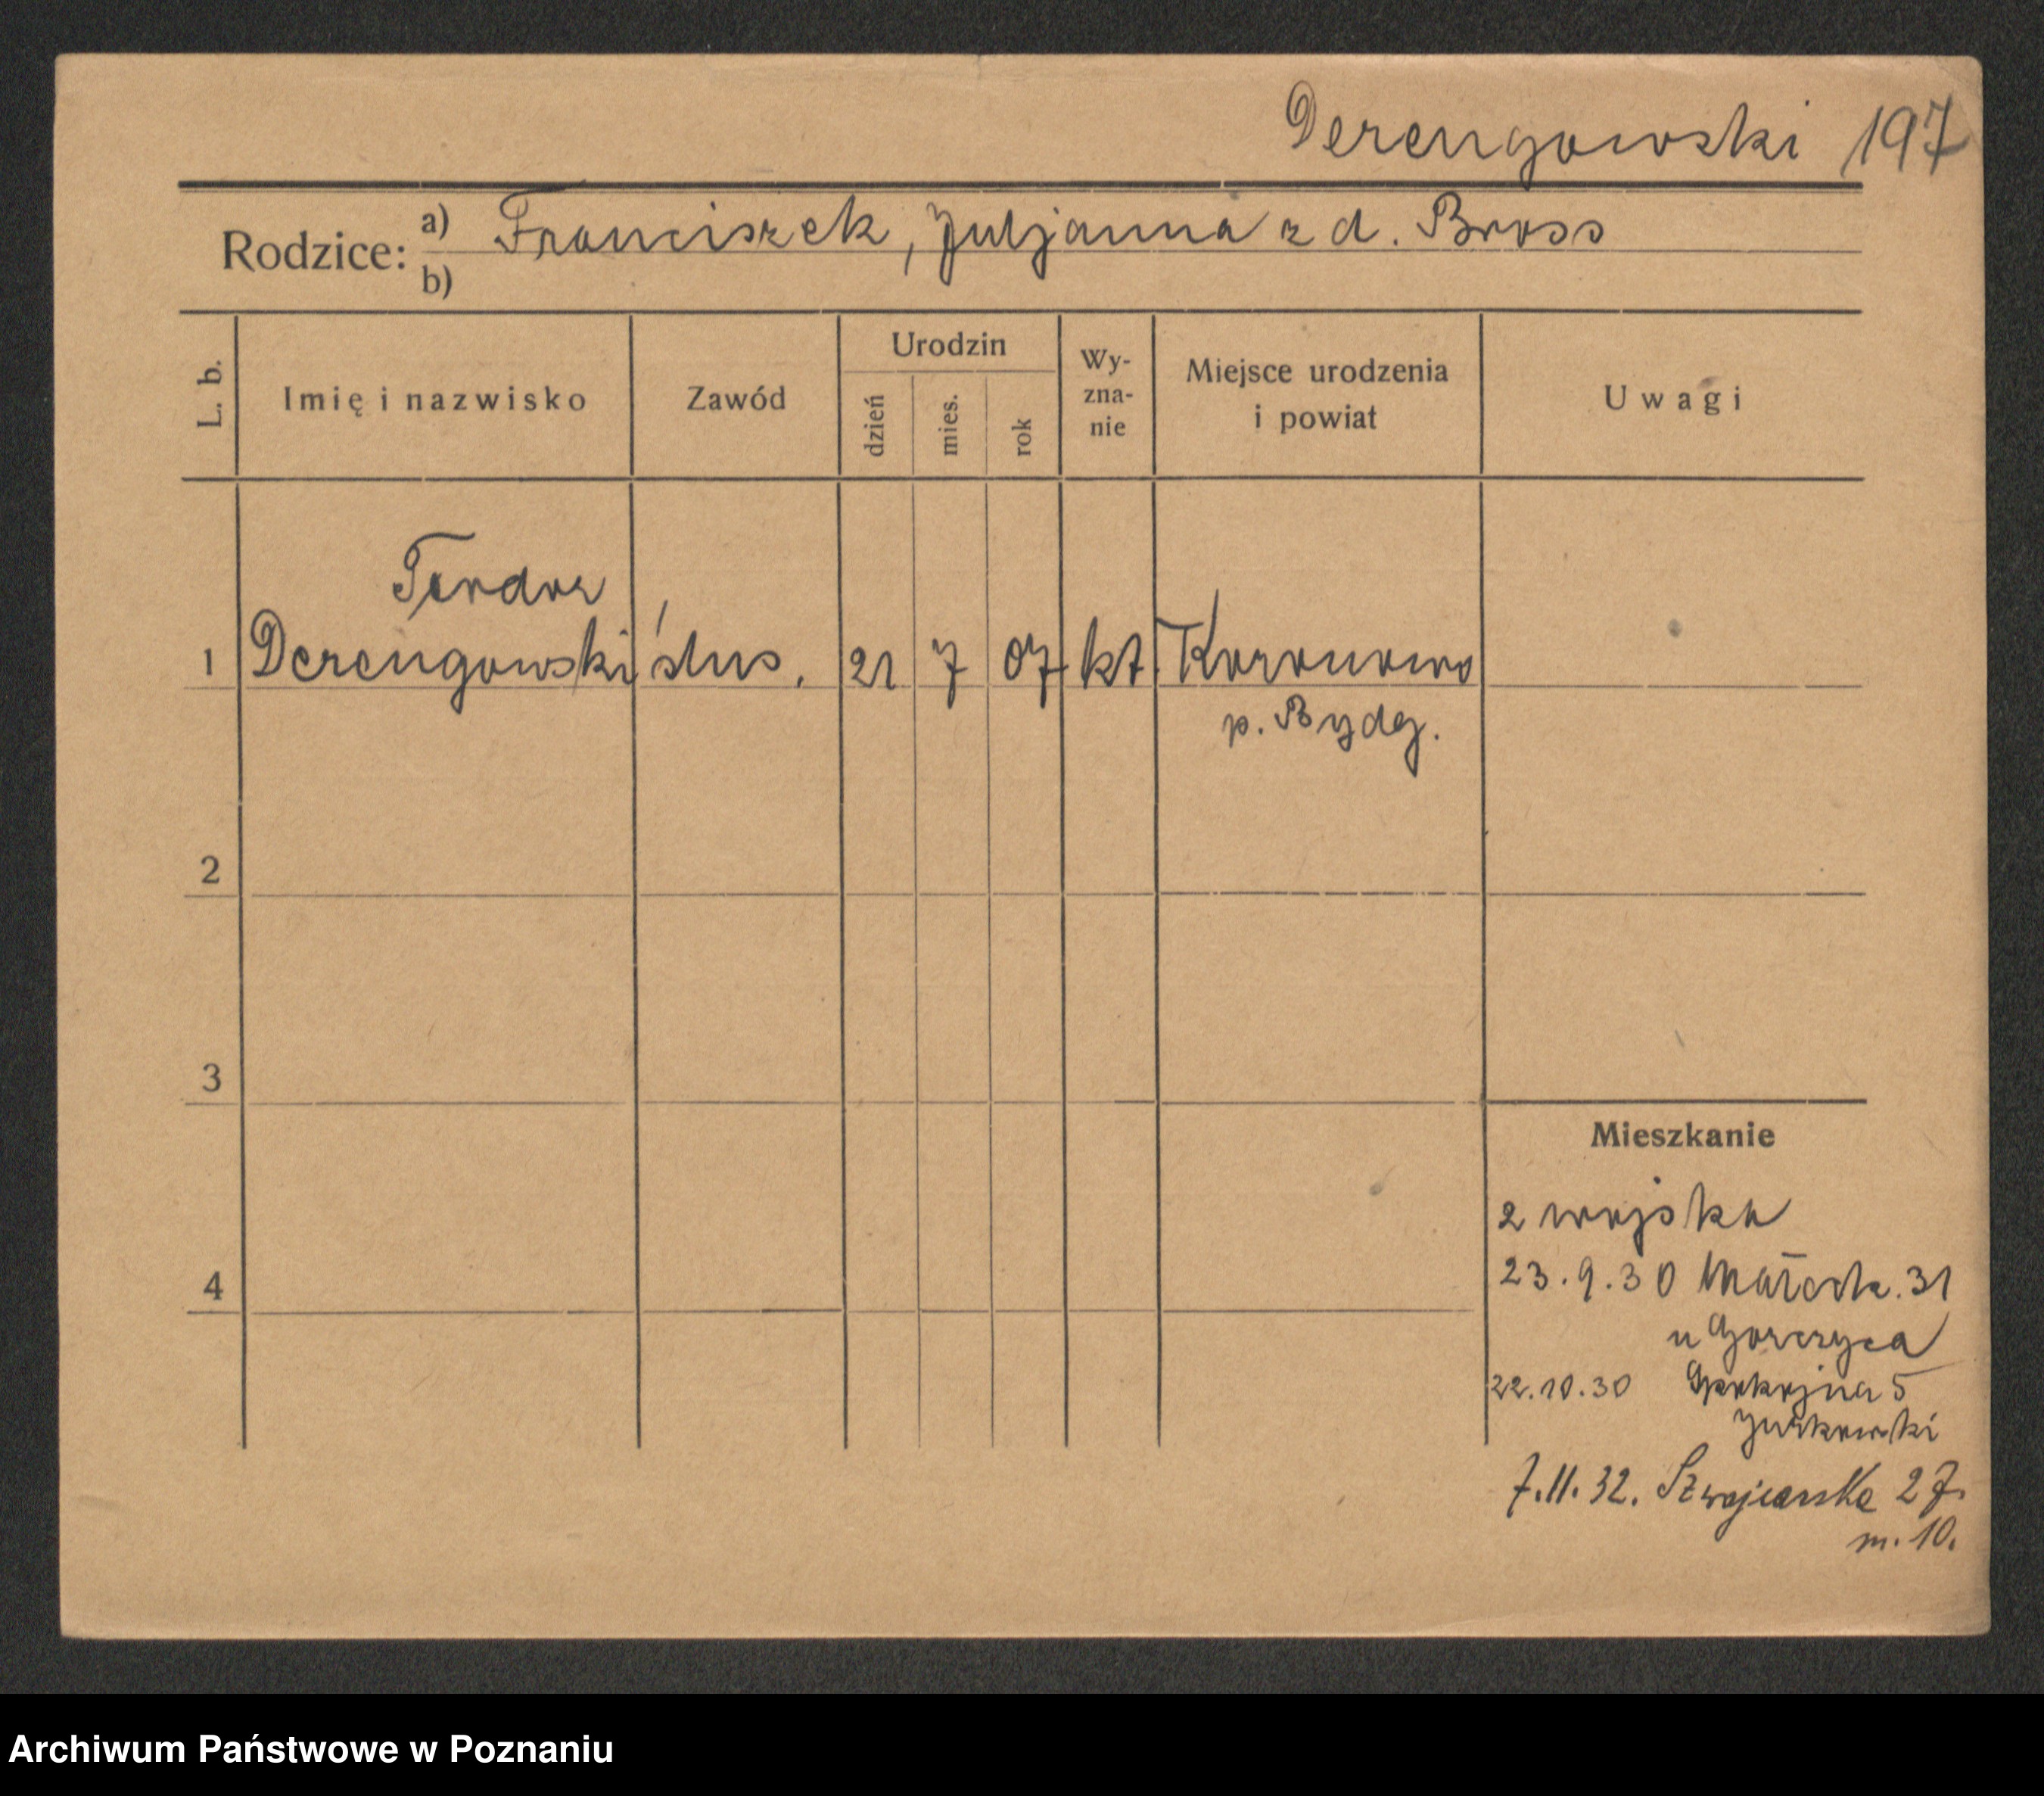 Derengowski 197
Rodzice: a) Franciszek, Juljanna z d. Bross
b)
L. b. Imię i nazwisko Zawód Urodzin dzień mies. rok Wy-zna-nie Miejsce urodzenia i powiat Uwagi
Teodor
1 Derengowski ślus. 21 7 07 kt. Koronowo
p. Bydg.
2
3
Mieszkanie
z wojska
4
23.9.30 Małeck. 31
u Gorczyca
22.10.30 Spokojna 5
Jurkowski
7.11.32. Szwajcarska 27.
m. 10.
Archiwum Państwowe w Poznaniu